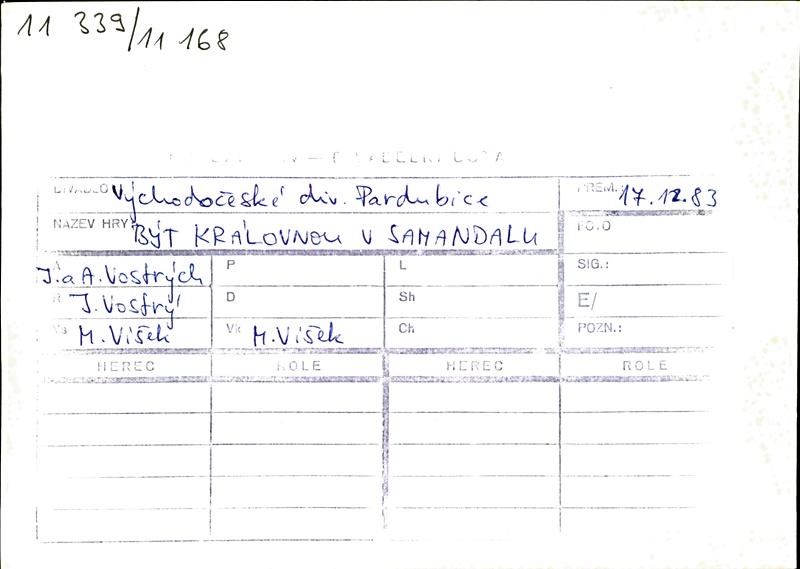 11 339/11 168
DIVADLO Východočeské div. Pardubice PREM. 17.12.83
NÁZEV HRY BÝT KRÁLOVNOU V SAMANDALU FOTO
J. a A. Vostrých P L SIG.:
R J. Vostrý D Sh E/
Vs M. Víšek Vk M. Víšek Ch POZN.:
HEREC ROLE HEREC ROLE